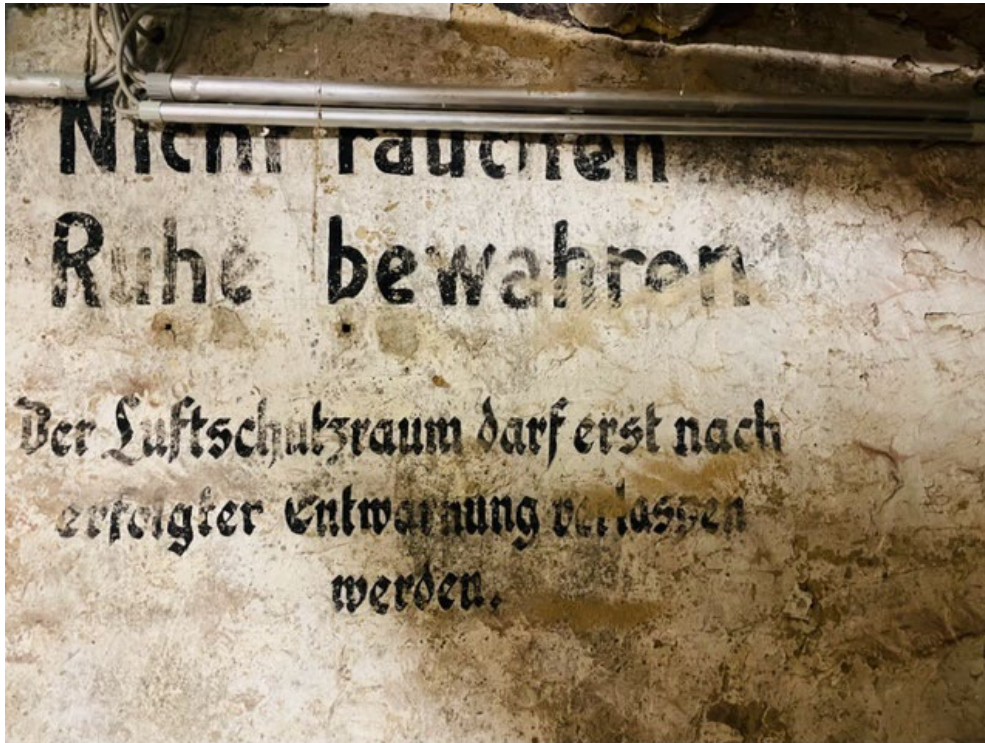 Nicht rauchen
Ruhe bewahren
Der Luftschutzraum darf erst nach
erfolgter Entwarnung verlassen
werden.